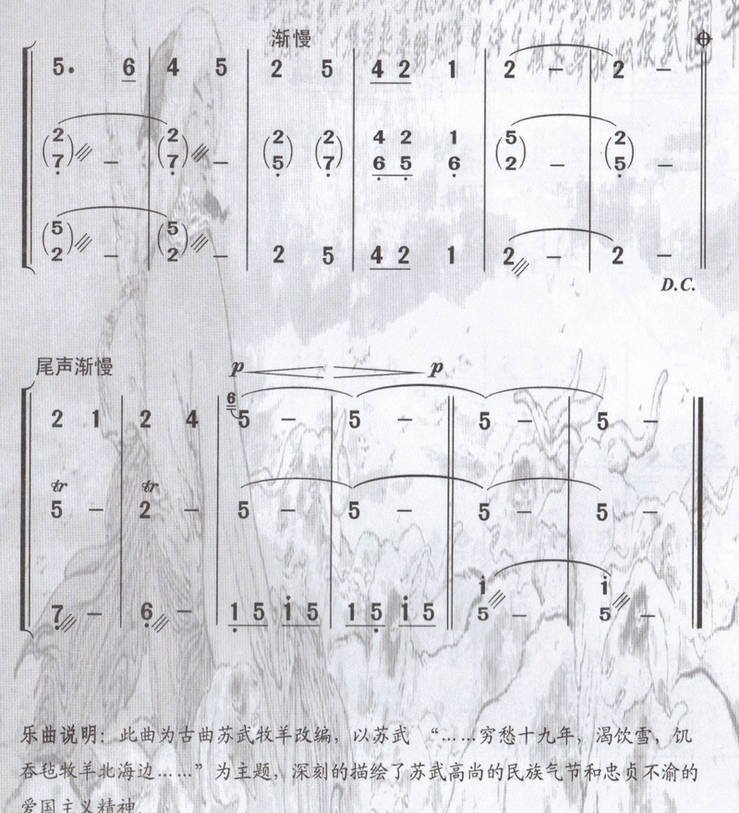 渐慢
5. 6 | 4 5 | 2 5 | 4 2 1 | 2 – | 2 –
2 2 2 2 4 2 1 5 2
7 – 7 – 5 7 6 5 6 2 – 5 –
5 5
2 – 2 – 2 5 4 2 1 2 – 2 –
D.C.
尾声渐慢 p p
2 1 | 2 4 | 6 5 – | 5 – | 5 – | 5 –
tr tr
5 – | 2 – | 5 – | 5 – | 5 – | 5 –
i i
7 – | 6 – | 1 5 i 5 | 1 5 i 5 | 5 – | 5 –
乐曲说明：此曲为古曲苏武牧羊改编，以苏武 “……穷愁十九年，渴饮雪，饥
吞毡牧羊北海边……”为主题，深刻的描绘了苏武高尚的民族气节和忠贞不渝的
爱国主义精神.